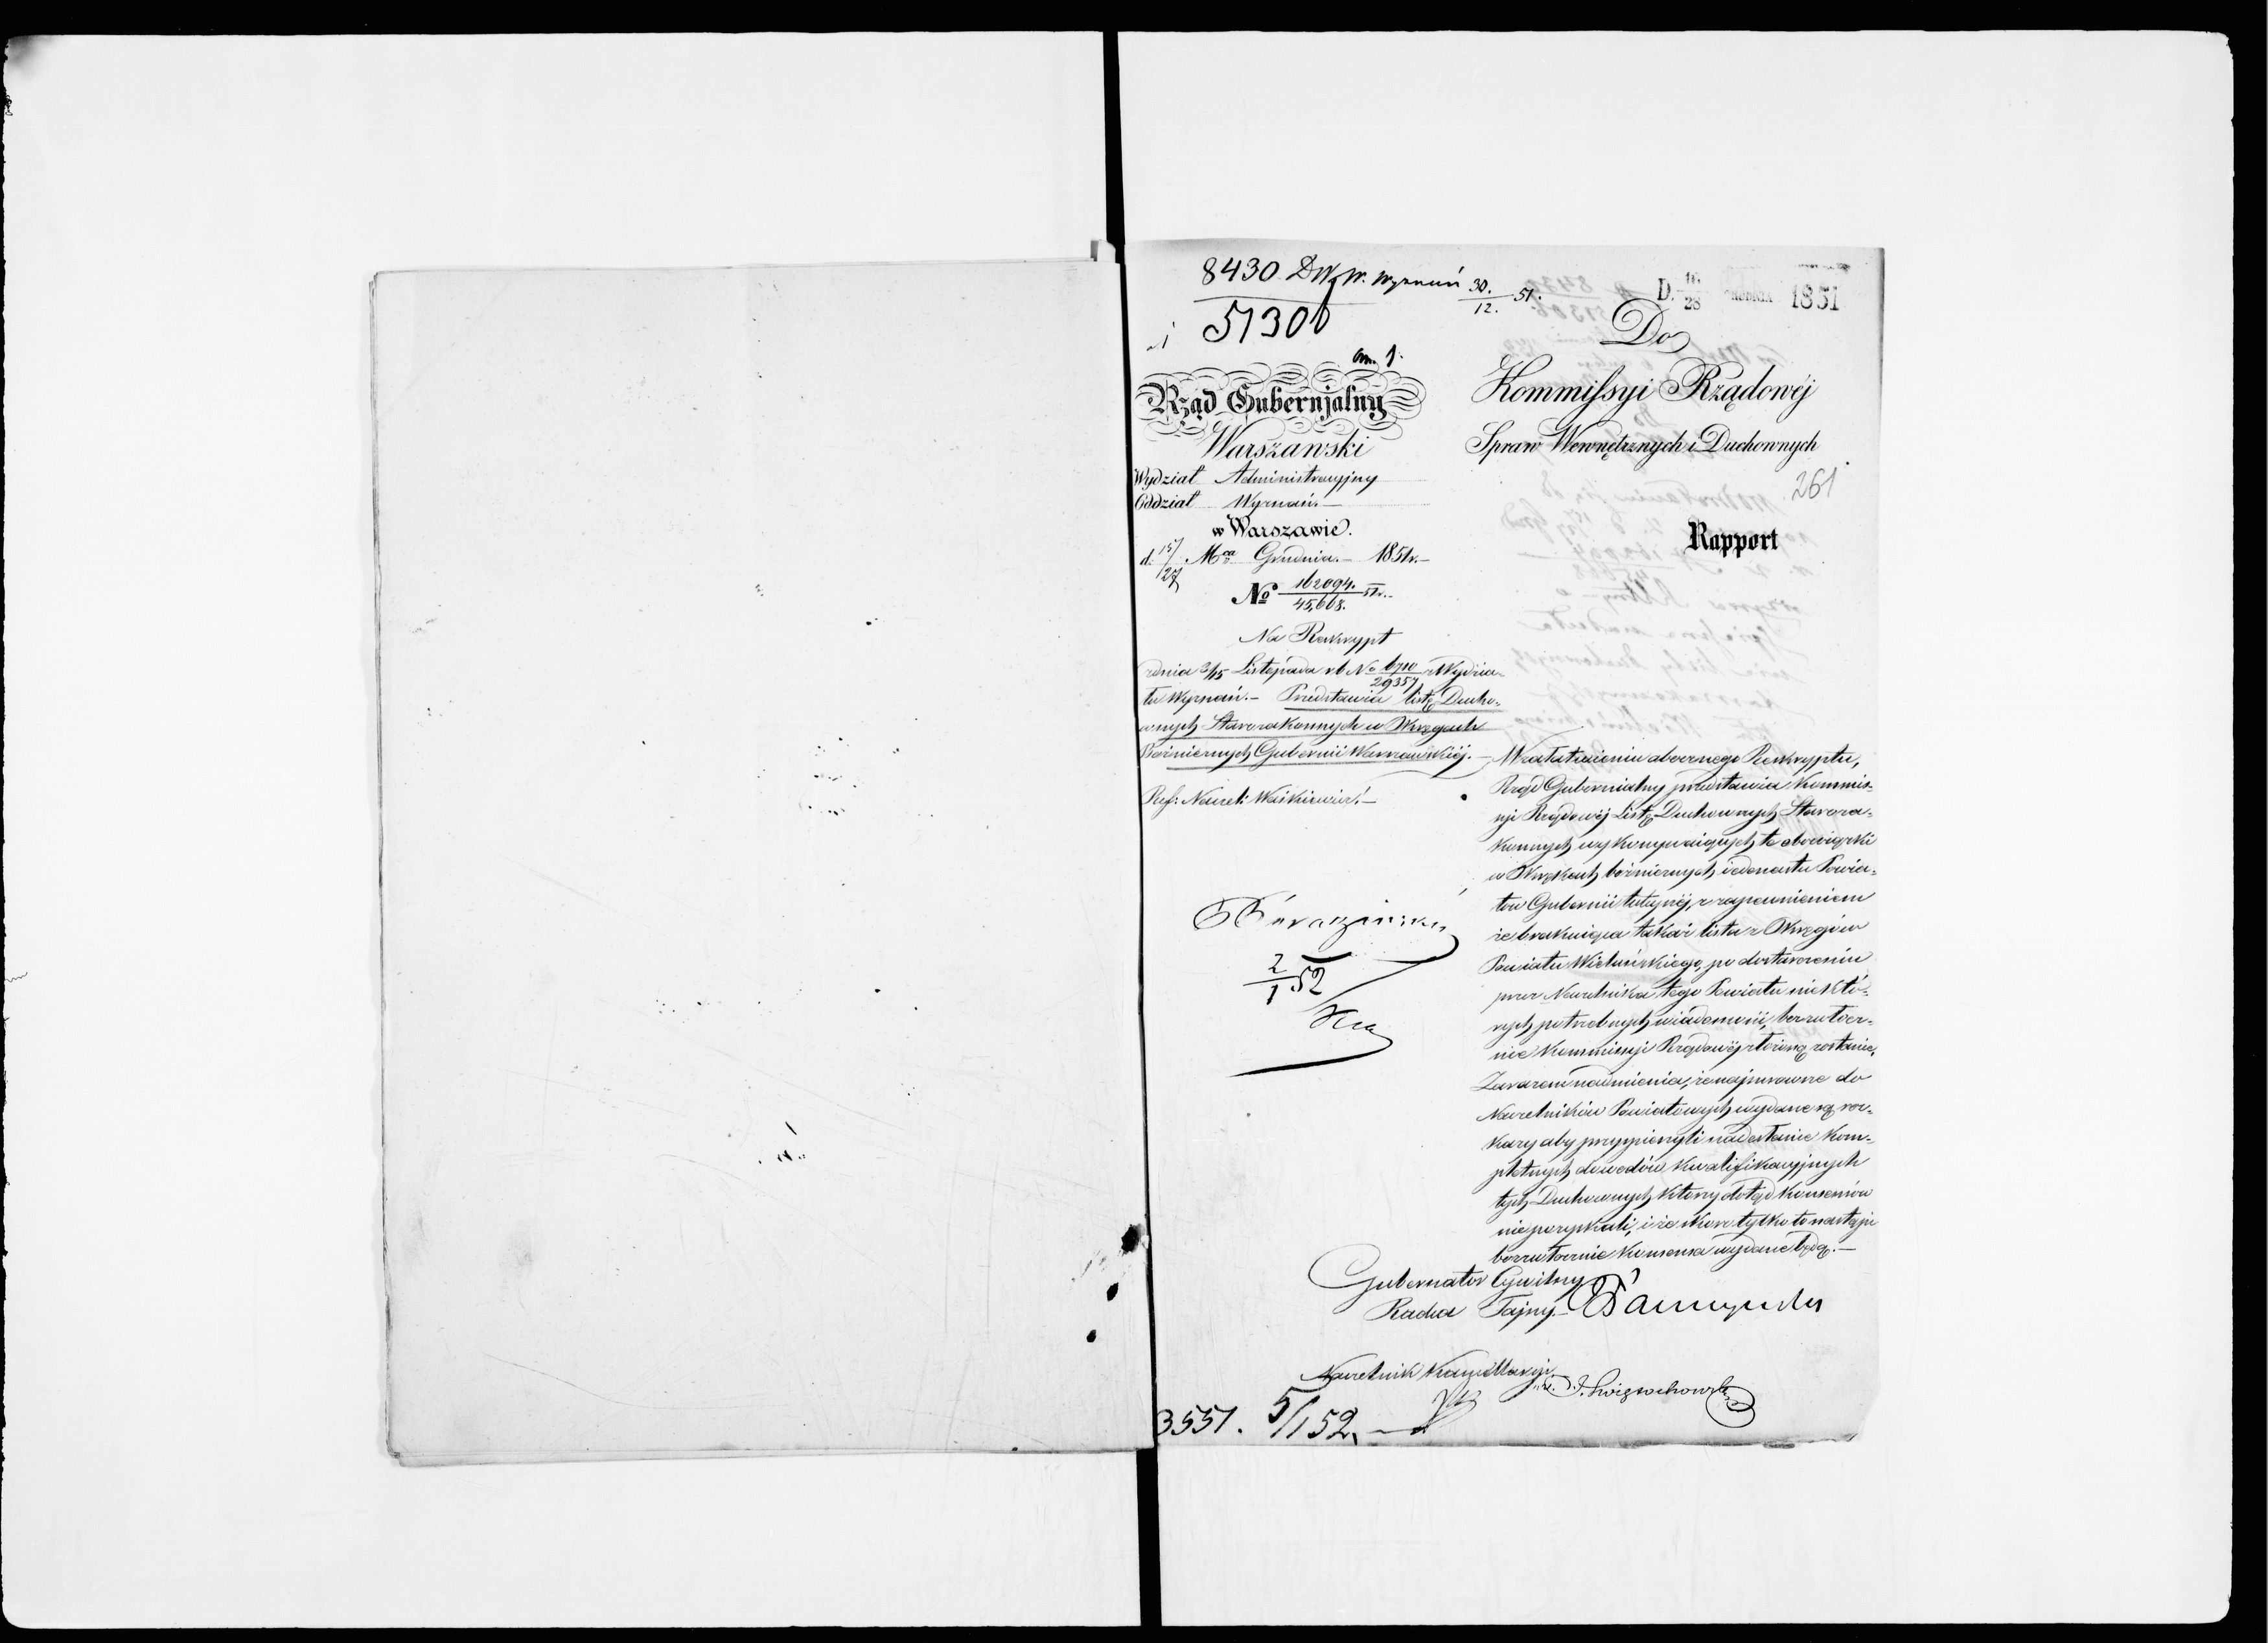 8430 D.W.W. Wyznań 30./12. 51.
51300
D. 16/28 GRUDNIA 1851
Do
Kommissyi Rządowéj
Spraw Wewnętrznych i Duchownych
261
Rapport
Rząd Gubernjalny
Warszawski
Wydział Administracyjny
Oddział Wyznań.—
w Warszawie.
d. 15/27 Mca Grudnia.— 1851r.—
No 162094./45,668. 51r.—
Na Reskrypt
z dnia 3/15 Listopada r b No 6710/29357 z Wydzia-
łu Wyznań.— Przedstawia listę Ducho-
wnych Starozakonnych w Okręgach
Bożniczych Gubernii Warszawskiéj.—
Ref: Naczel: Waśkiewicz.—
W załatwieniu obocznego Reskryptu,
Rząd Gubernialny przedstawia Kommis-
syi Rządowéj Listę Duchownych Staroza-
konnych wykonywaiących te obowiązki
w Okręgach bożniczych iedenastu Powia-
tów Gubernii tutejszéj, z zapewnieniem
że brakuiąca takaż lista z Okręgów
Powiatu Wieluńskiego, po dostarczeniu
przez Naczelnika tego Powiatu niektó-
rych potrzebnych wiadomości, bezzwłocz-
nie Kommissyi Rządowéj złożoną zostanie.
Zarazem nadmienia, że najsurowsze do
Naczelników Powiatowych wydane są roz-
kazy aby przyspieszyli nadesłanie kom-
pletnych dowodów kwalifikacyjnych
tych Duchownych którzy dotąd konsensów
nie pozyskali, i że skoro tylko to nastąpi
bezzwłocznie konsensa wydane będą.—
2/1 52
Gubernator Cywilny
Radca Tajny.—
Naczelnik Kancellaryi
3551. 5/1 52.